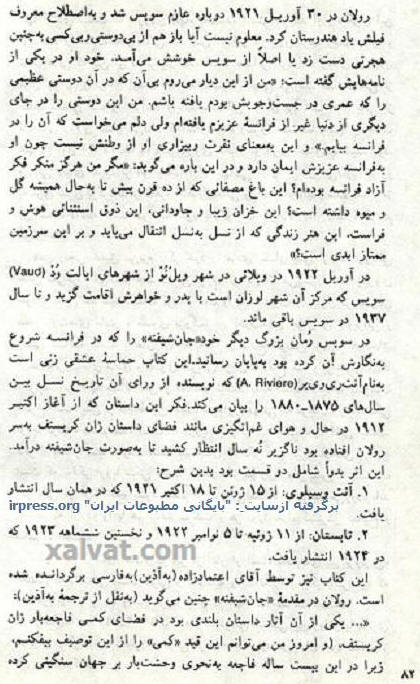 رولان در ۳۰ آوریل ۱۹۲۱ دوباره عازم سویس شد و به‌اصطلاح معروف
فیلش یاد هندوستان کرد. معلوم نیست آیا باز هم از بی‌دوستی‌وبی‌کسی به‌چنین
هجرتی دست زد یا اصلاً از سویس خوشش می‌آمد. خود او در یکی از
نامه‌هایش گفته است: «من از این دیار می‌روم بی‌آن که در آن دوستی عظیمی
را که عمری در جست‌وجویش بودم یافته باشم. من این دوستی را در جای
دیگری از دنیا غیر از فرانسهٔ عزیزم یافته‌ام ولی دلم می‌خواست که آن را در
فرانسه بیابم.» و این به‌معنای نفرت وبیزاری او از وطنش نیست چون او
به‌فرانسه عزیزش ایمان دارد و در این باره می‌گوید: «مگر من هرگز منکر فکر
آزاد فرانسه بوده‌ام؟ این باغ مصفائی که از ده قرن پیش تا به‌حال همیشه گل
و میوه داشته است؟ این خزان زیبا و جاودانی، این ذوق استثنائی هوش و
فراست، این هنر زندگی که از نسل به‌نسل انتقال می‌یابد و بر این سرزمین
ممتاز ابدی است؟»
در آوریل ۱۹۲۲ در ویلائی در شهر ویل‌نُوْ از شهرهای ایالت وُدْ (Vaud)
سویس که مرکز آن شهر لوزان است با پدر و خواهرش اقامت گزید و تا سال
۱۹۳۷ در سویس باقی ماند.
در سویس رُمان بزرگ دیگر خود«جان‌شیفته» را که در فرانسه شروع
به‌نگارش آن کرده بود به‌پایان رسانید.این کتاب حماسهٔ عشقی زنی است
به‌نام‌آنت‌ری‌وی‌یر(A. Riviere) که نویسنده از ورای آن تاریخ نسل بین
سال‌های ۱۸۷۵ــ۱۸۸۰ را بیان می‌کند.فکر این داستان که از آغاز اکتبر
۱۹۱۲ در حال و هوای غم‌انگیزی مانند فضای داستان ژان کریستف به‌سر
رولان افتاده بود ناگزیر نُه سال انتظار کشید تا به‌صورت جان‌شیفته درآمد.
این اثر بدواً شامل دو قسمت بود بدین شرح:
۱. آنت وسیلوی: از ۱۵ ژوئن تا ۱۸ اکتبر ۱۹۲۱ که در همان سال انتشار
یافت. برگرفته ازسایت : "بایگانی مطبوعات ایران" irpress.org
۲. تابستان: از ۱۱ ژوئیه تا ۵ نوامبر ۱۹۲۲ و نخستین ششماهه ۱۹۲۳ که
در ۱۹۲۴ انتشار یافت.
xalvat.com
این کتاب نیز توسط آقای اعتمادزاده (به‌آذین)به‌فارسی برگردانده شده
است. رولان در مقدمهٔ «جان‌شیفته» چنین می‌گوید (به‌نقل از ترجمهٔ به‌آذین):
«... یکی از آن آثار داستان بلندی بود در فضای کمی فاجعه‌بار ژان
کریستف. (و امروز من می‌توانم این قید «کمی» را از این توصیف بیفکنم،
زیرا در این بیست ساله فاجعه به‌نحوی وحشت‌بار بر جهان سنگینی کرده
۸۲